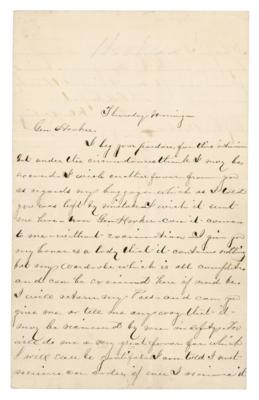 Thursday Morning
Gen Hooker.
I beg your pardon for this
but under the circumstances think I may be
I wish another favor from you
as regards my baggage which as I told
you was left by mistake I wish it sent
me here now Gen Hooker can it come
to me without examination I give you
my honor as a lady that it contains nothing
but my wardrobe which is all complete
and can be examined here if must be.
I will return my Pass and can you
give me or tell me any way that it
may be received by me in safety. You
will do me a very great favor for which
I will ever be grateful. I am told I must
an order if ever I